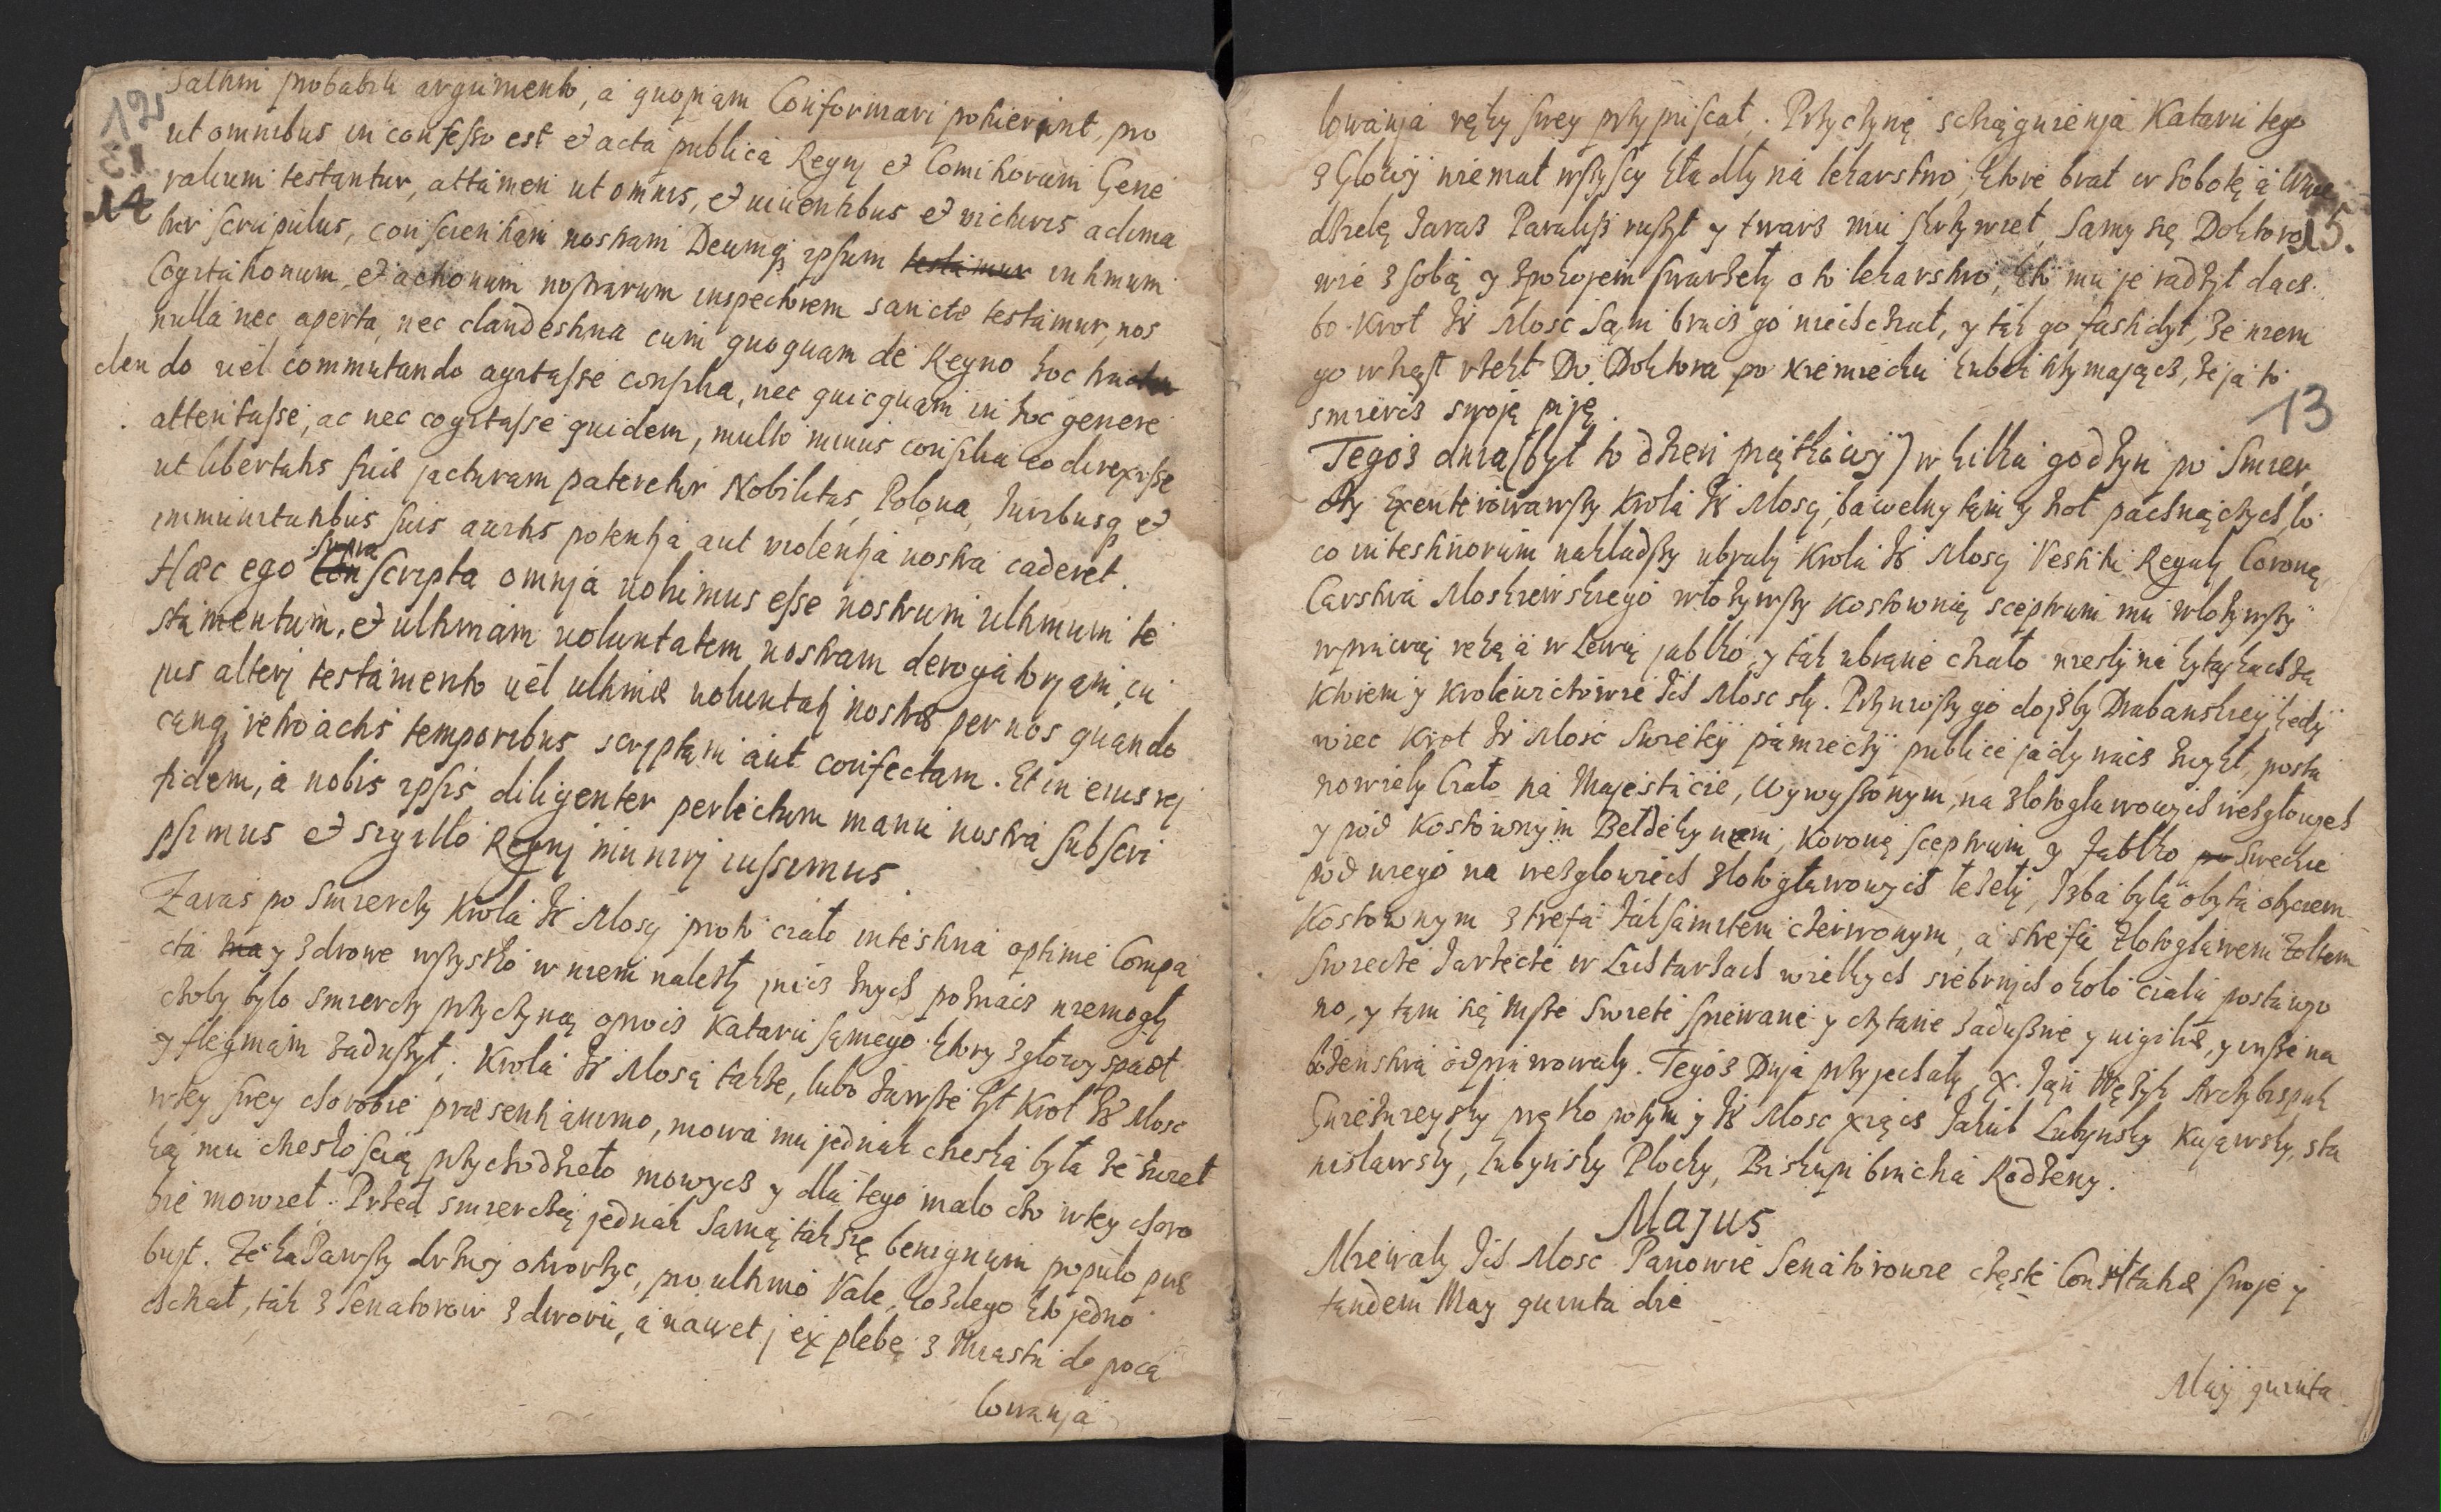 12
14
saltim probabili argumento, a quoquam Conformari potuerint, pro
ut omnibus in confesso est et acta publica Regnj et Comitiorum Gene
ralium testantur, attamen ut omnis, et uiuentibus et uicturis adima
tur scrupulus, conscientiam nostram Deumq; ipsum testamur intimum
Cogitationum, et actionum nostrarum inspectorem sancte testamur, nos
nulla nec aperta, nec clandestina cum quoquam de Regno hoc
dendo uel commutando agitasse consilia, nec quicquam in hoc genere
attentasse, ac nec cogitasse quidem, multo minus consilia eo direxisse
ut libertatis suæ jacturam pateretur Nobilitas Polona, Iuribusq; et
immunitatibus suis auitis potentia aut uiolentia nostra caderet.
Hæc ego supra scripta omnja uolumus esse nostrum ultimum te
stamentum, et ultimam uoluntatem nostram derogatorjam, cu
jus alterj testamento uel ultimæ uoluntatj nostræ per nos quando
cunq; retroactis temporibus scriptam aut confectam. Et in eius rej
fidem, a nobis ipsis diligenter perlectum manu nostra subscri
psimus et sigillo Regnj munirj iussimus.
Zaraś po smierczy Krola Je Mosci proto ciało intestina optime Compa
cta y zdrowe wszystko w niem nalezly inich poznacz niemogly
choby bylo smierczy przyczyną oprocz Kataru samego ktory zglowy spadl
y flegmam zadusył. Krola Je Mosci takze, lubo zawsze był Krol Je Mosc
wtey swey chorobie præsenti animo, mowa mu jednak cieska była ze
ką mu cieskoscią przychodzieło mowycz y dla tego malo cho wtey choro
bie mowieł. Przed smierczią jednak samą tak się benignum populo præ
buit. Ze kazawszy drzwj otworzyc, pro ultimo Vale, kozdego kto jedno
chciał, tak z Senatorow z dworu, a nawet j ex plebe z Miasta do poca
lowanja
lowanja ręky swey przypuscał. Przyczynę schiągnienja Kataru tego
z Głowy niemal wszyscy kładly na lekarstwo, ktore brał w sobotę a
dzielę zaraz Paraliss ruszył y twarz mu skrzywieł, Samy się Doktoro
15.
wie z sobą y zpokojem swarzely o to lekarstwo, kto mu je radzył dacz.
bo Krol Je Mosc Sam bracz go niechciał, y tak go fastidył, ze niem
go rzekł Do Doktora po Niemiecku kubek trzymającz, ze ja to
smiercz swoję piję.
13
Tegoz dnia (był to dzien piątkowy) w kilka godzyn po smier
czy Exenterowawszy Krola Je Mosci, bawelny tam y ziol pachnączych lo
co intestinorum nakladszy ubraly Krola Je Mosci Vestitu Regali Coroną
Carstwa Moskiewskiego włozywszy Kostowną sceptrum mu wlozywszy
wprawą rekę a w Lewą jablko, y tak ubrane ciało niesly na
ktorem y Krolewiczowie Ich Mosc sly. Przyniosszy go do izby Drabanskiej kędy
wiec Krol Je Mosc Swietej pamieczy publice jadywacz zwykł, posta
nowiely Ciało na Majestacie, Wywyszonym, na złotogławowych wezglowjech
y pod Kostownym Beldekynem, Koronę sceptrum y Jablko swiecie
pod niego na wezglowiech złotogławowych lezely, Izba była obyta obyciem
Kostownym z trefa Jaksamitem czerwonym, a strefa złotogławem żoltem
swiecie Jarzecie w Lichtarzach wielkych srebrnych okolo ciała postawio
no, y tam się Msze swiete spiewane y czytane Zaduszne y uigiliæ, y insze na
bozenstwa odprawowały. Tegoz Dnja przyjechaly X. Jan Wężyk Archybispuk
Gnieznieysky prętko potym y Je Mosc Xiącz Jakub Lubynsky Kujawsky, sta
nislawsky, Lubynsky Plocky, Biskupi bracia Rodzeny.
Majus
Miewaly Ich Mosc Panowie Senatorowie częste Consultatiæ swoje y
tandem May quinta die
Maij quinta